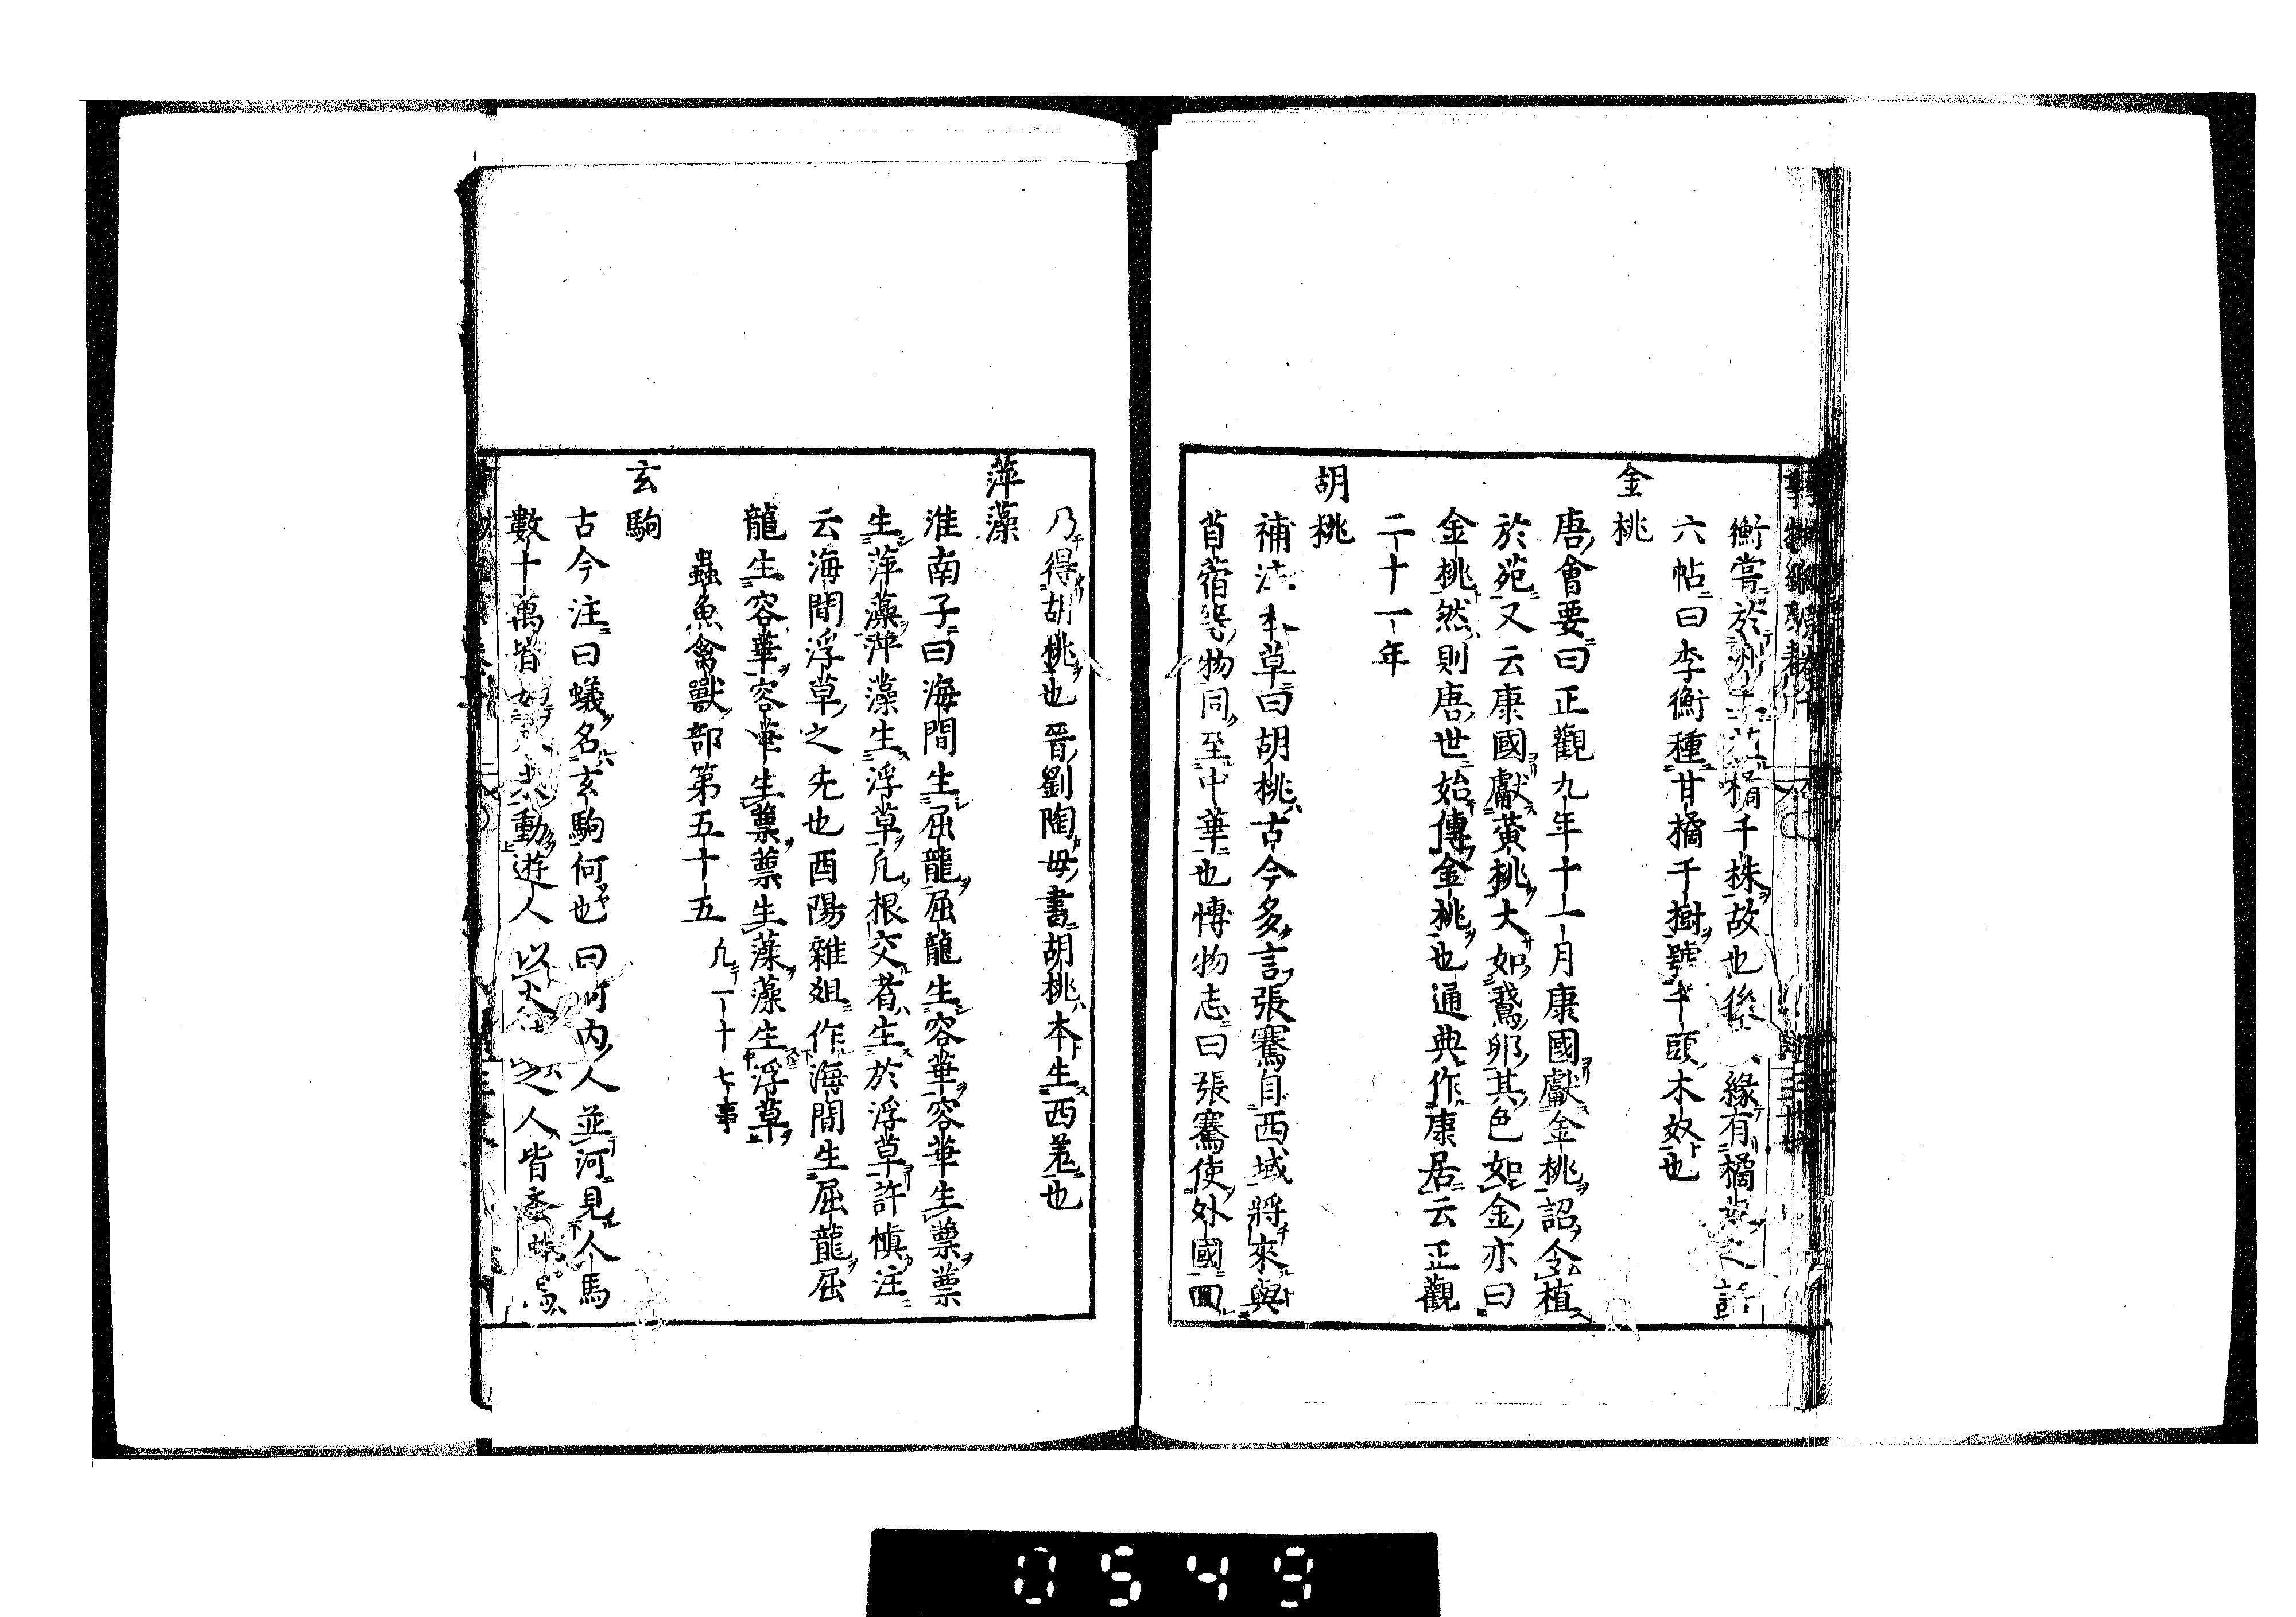 衡嘗於 楫千株故也後 緣有橘 之詩
六帖曰李衡種甘橘千樹號千頭木奴也
金桃
唐會要曰正觀九年十一月康國獻金桃詔令植
於苑又云康國獻黃桃大如鵞卵其色如金亦曰
金桃然則唐世始傳金桃也通典作康居云正觀
二十一年
胡桃
補注本草曰胡桃古今多言張騫自西域將來與
苜蓿等物同至中華也愽物志曰張騫使外國回
乃得胡桃也晉劉陶母書胡桃本生西羌也
萍藻
淮南子曰海間生屈龍屈龍生容華容華生蔈蔈
生萍藻萍藻生浮草凢根交者生於浮草許慎注
云海間浮草之先也酉陽雜俎作海間生屈龍屈
龍生容華容華生蔈蔈生藻藻生浮草
蟲魚禽獸部第五十五 凢一十七事
玄駒
古今注曰蟻名玄駒何也曰河內人並河見人馬
數十萬皆如 動遊人 以火 之人皆
0549